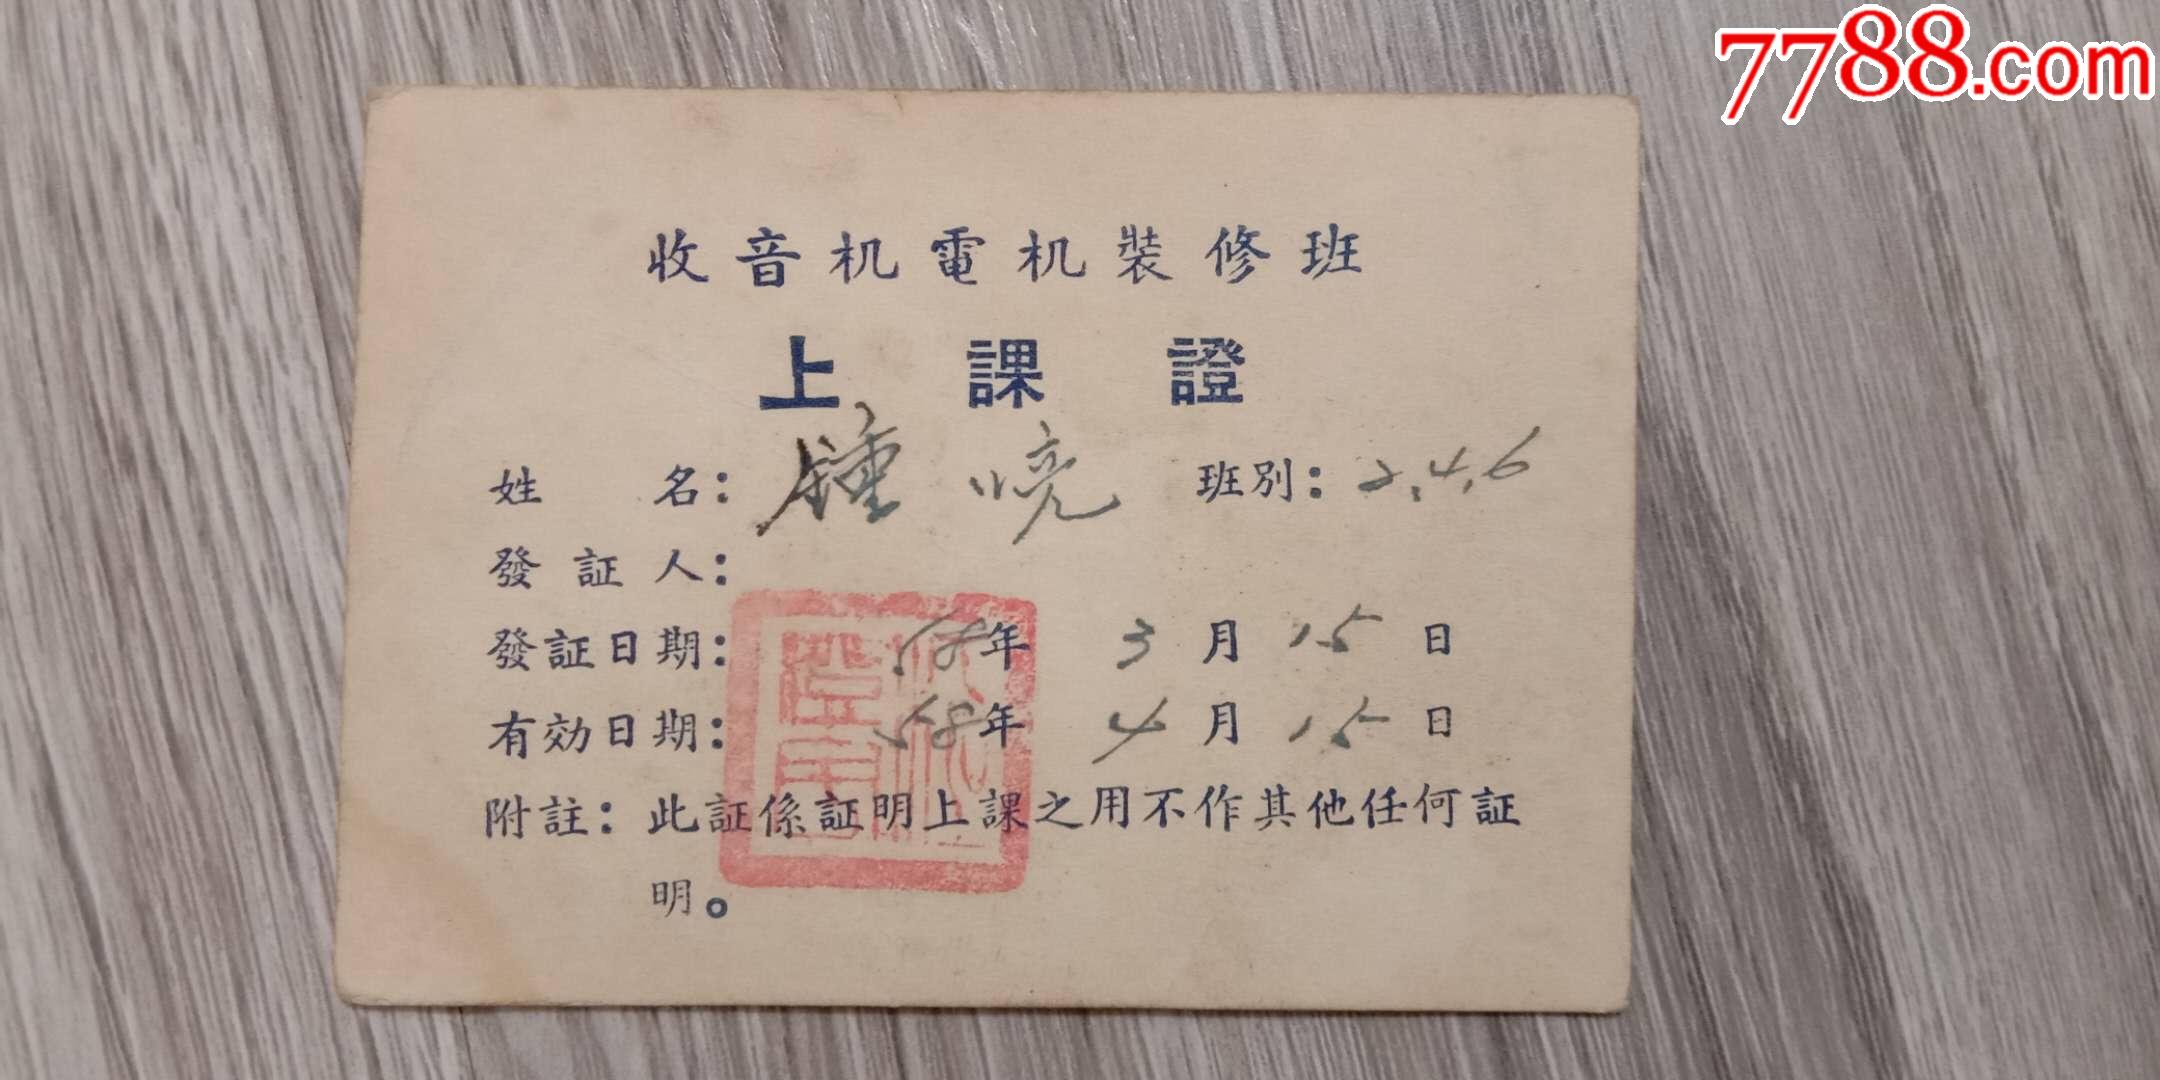 7788.com
收音机電机裝修班
上課證
姓名：鍾曉 班別：2,4,6
發証人：
發証日期：58年3月15日
有効日期：58年4月15日
附註：此証係証明上課之用不作其他任何証
明。